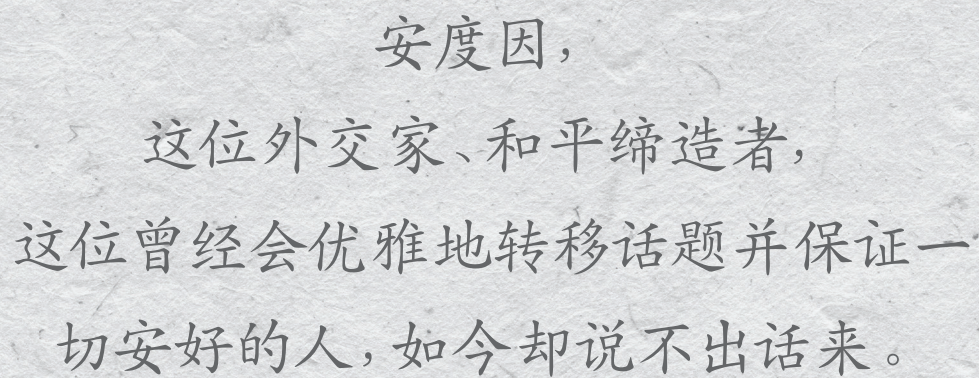 安度因，
这位外交家、和平缔造者，
这位曾经会优雅地转移话题并保证一
切安好的人，如今却说不出话来。